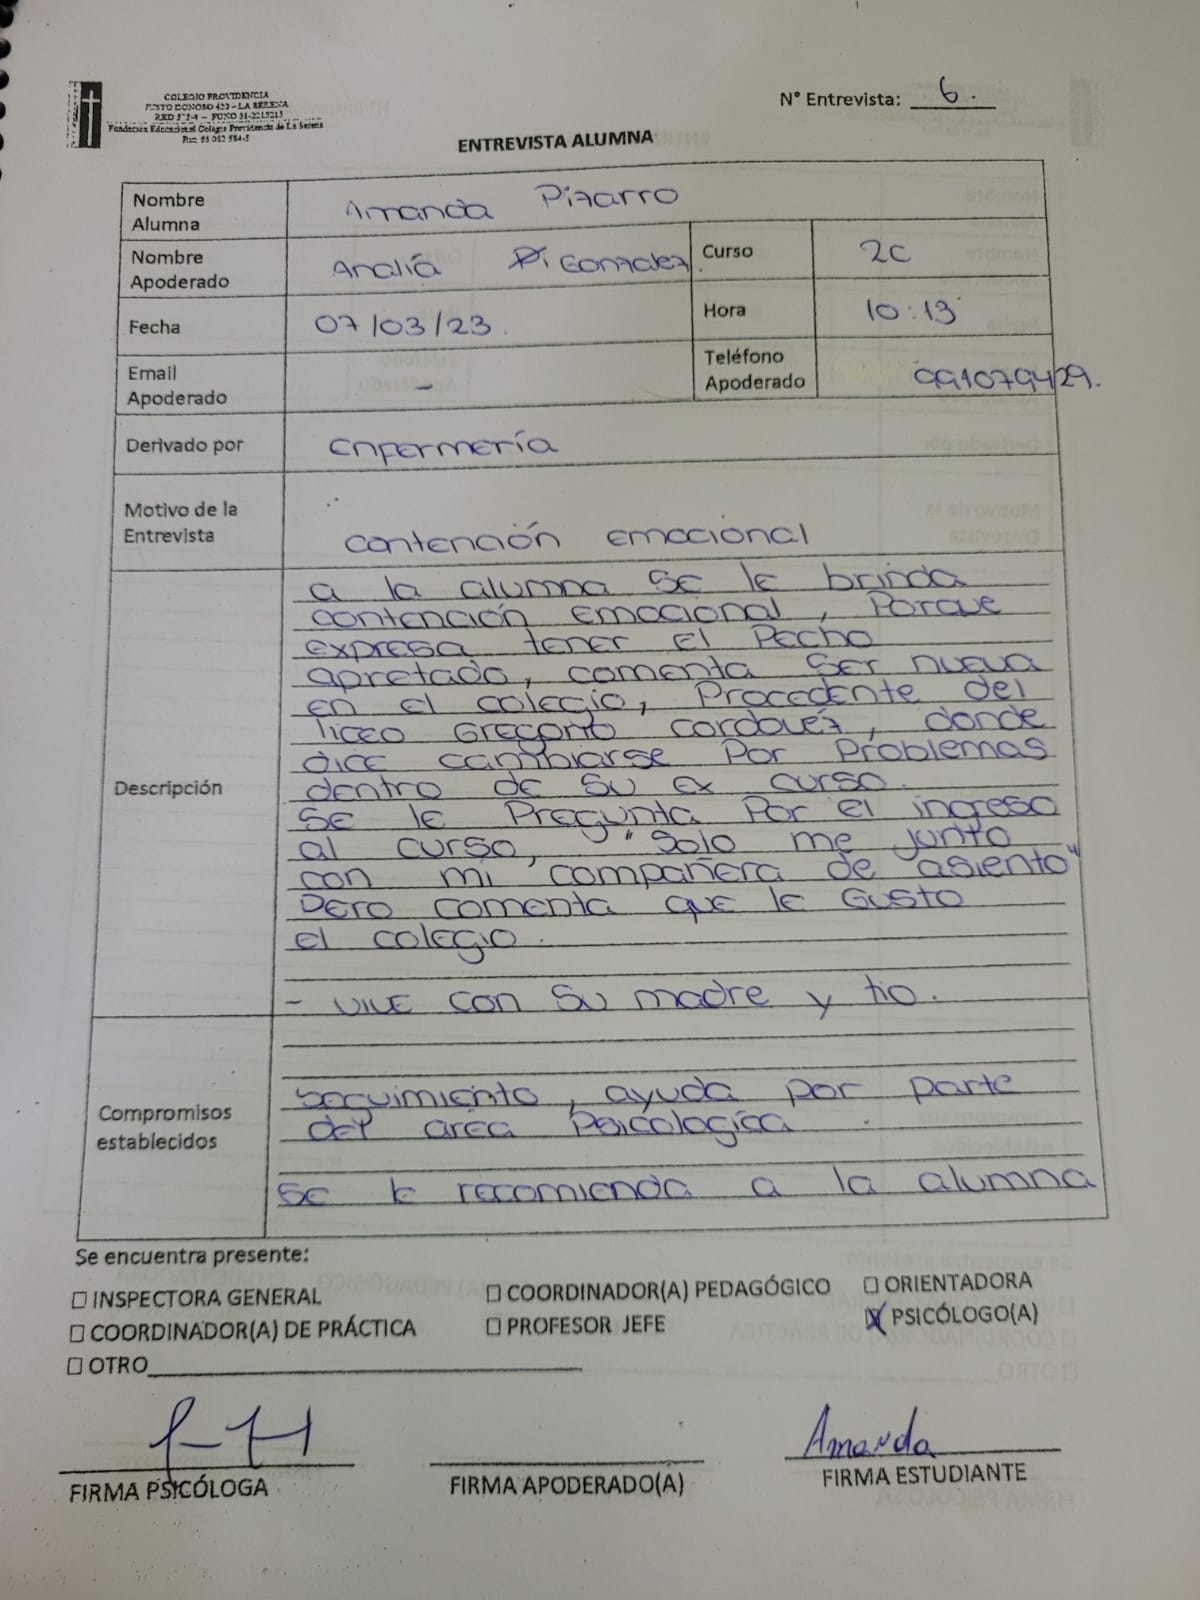 COLEGIO PROVIDENCIA
JUSTO DONOSO 420 - LA SERENA
Fundación Educacional Colegio Providencia de La Serena
N° Entrevista: 6.
ENTREVISTA ALUMNA
Nombre Alumna Amanda Pizarro
Nombre Apoderado Analía Gonzalez. Curso 2C
Fecha 07/03/23. Hora 10:13
Email Apoderado - Teléfono Apoderado 991079429.
Derivado por Enfermería
Motivo de la Entrevista contención emocional
Descripción
a la alumna se le brinda
contención emocional, Porque
expresa tener el Pecho
apretado, comenta ser nueva
en el colegio, Procedente del
liceo Gregorio cordovéz, donde
dice cambiarse Por Problemas
dentro de su ex curso.
se le Pregunta Por el ingreso
al curso, "solo me junto
con mi compañera de asiento"
Pero comenta que le Gusto
el colegio.
- vive con su madre y tio.
Compromisos establecidos
seguimiento, ayuda por parte
del area Psicologica.
se le recomienda a la alumna
Se encuentra presente:
☐ INSPECTORA GENERAL ☐ COORDINADOR(A) PEDAGÓGICO ☐ ORIENTADORA
☐ COORDINADOR(A) DE PRÁCTICA ☐ PROFESOR JEFE ☒ PSICÓLOGO(A)
☐ OTRO
Amanda
FIRMA PSICÓLOGA FIRMA APODERADO(A) FIRMA ESTUDIANTE